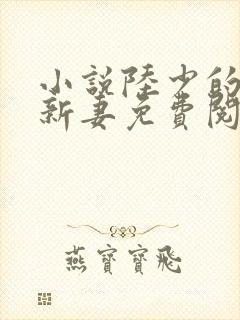 小説陸少的
新妻免費閱
燕寶寶飛